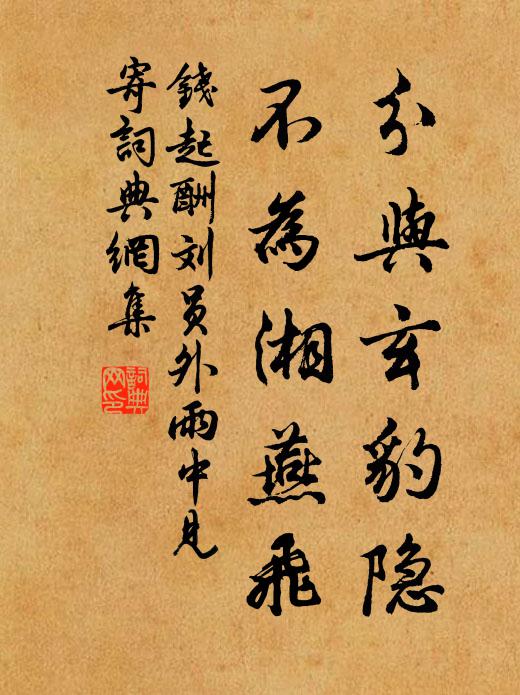 分與玄豹隐
不為湘燕飛
錢起酬刘員外雨中見
寄詞典網集
詞典
网印